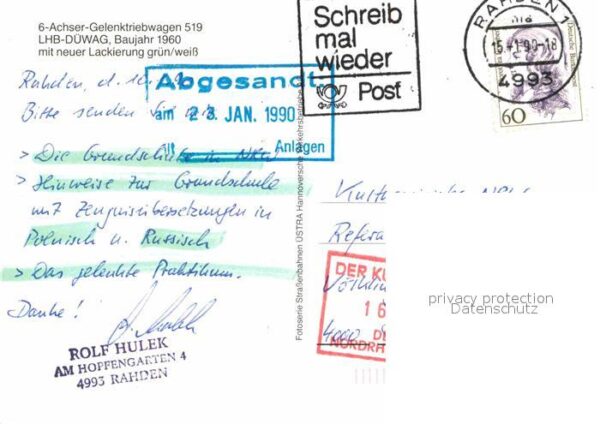 6-Achser-Gelenktriebwagen 519
LHB-DÜWAG, Baujahr 1960
mit neuer Lackierung grün/weiß
Schreib
mal
wieder
Post
RAHDEN 1
15.-1.90-18
4993
60
Rahden, d. 10.
Abgesandt
am 23. JAN. 1990
Anlagen
Bitte senden Sie mir
> Die Grundschule in NRW
> Hinweise zur Grundschule
mit Zeugnisübersetzungen in
Polnisch u. Russisch
> Das gelenkte Praktikum.
Danke!
ROLF HULEK
AM HOPFENGARTEN 4
4993 RAHDEN
Fotoserie Straßenbahnen ÜSTRA Hannoversche Verkehrsbetriebe
Refera
DER KU
1 6
NORDRH
4000
privacy protection
Datenschutz